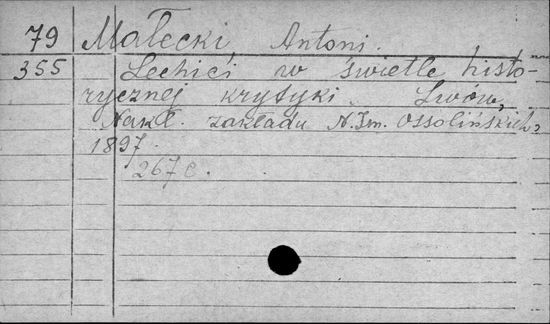 79 Małecki, Antoni.
355 Lechici w świetle histo-
rycznej krytyki. Lwów,
Nakł. zakładu N. Im. Ossolińskich,
1897.
267 c.